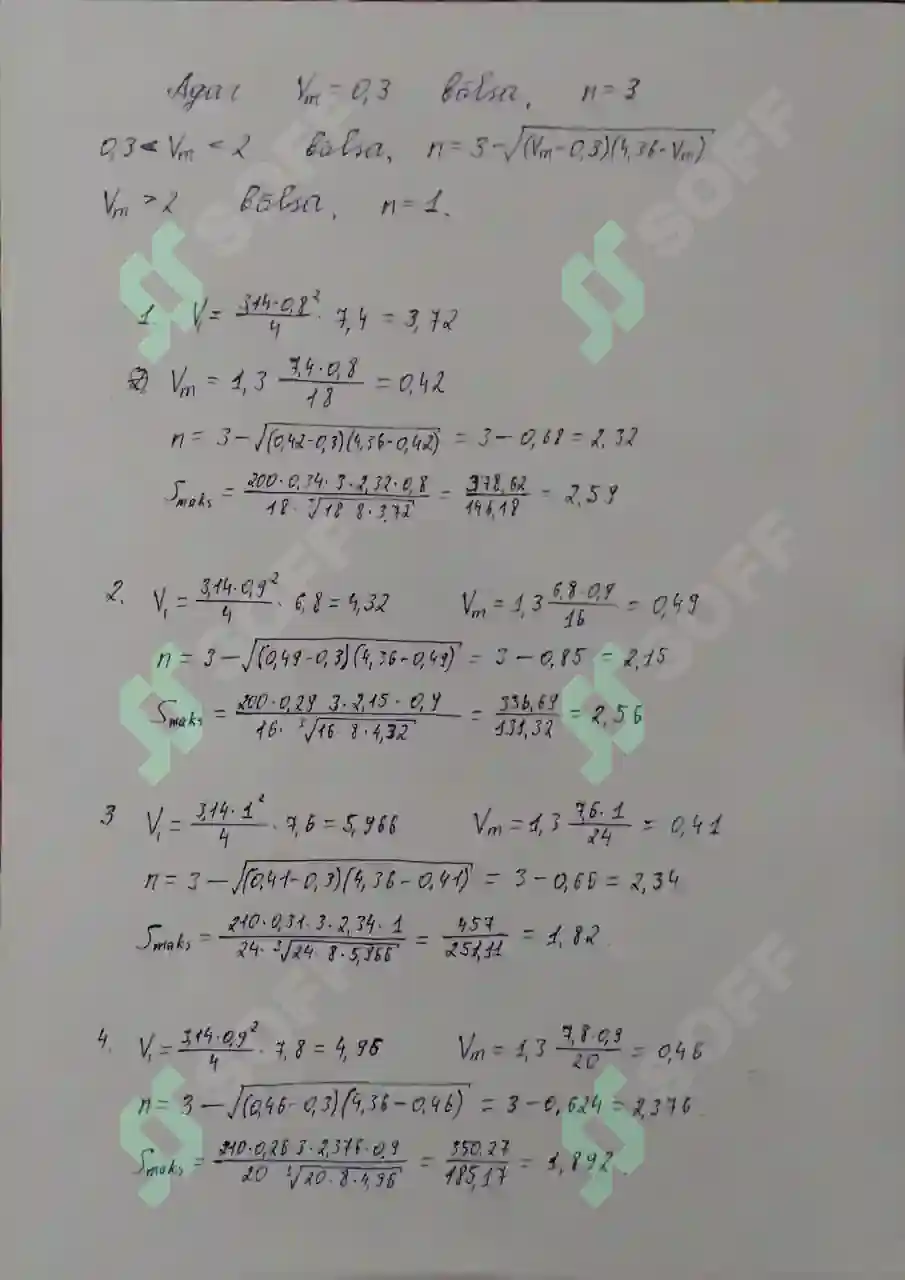 Agar Vm = 0,3 bōlsa, n = 3
0,3 < Vm < 2 bōlsa, n = 3 - √(Vm - 0,3)(4,36 - Vm)
Vm > 2 bōlsa, n = 1.
1. V₁ = 3,14·0,8²/4 · 7,4 = 3,72
2) Vm = 1,3 7,4·0,8/18 = 0,42
n = 3 - √(0,42-0,3)(4,36-0,42) = 3 - 0,68 = 2,32
Smaks = 200·0,34·3·2,32·0,8/18·³√18 8·3,72 = 378,62/146,18 = 2,59
2. V₁ = 3,14·0,9²/4 · 6,8 = 4,32 Vm = 1,3 6,8·0,9/16 = 0,49
n = 3 - √(0,49-0,3)(4,36-0,49) = 3 - 0,85 = 2,15
Smaks = 200·0,29 3·2,15·0,9/16·³√16 8·4,32 = 336,69/131,32 = 2,56
3 V₁ = 3,14·1²/4 · 7,6 = 5,966 Vm = 1,3 7,6·1/24 = 0,41
n = 3 - √(0,41-0,3)(4,36-0,41) = 3 - 0,66 = 2,34
Smaks = 210·0,31·3·2,34·1/24·³√24 8·5,966 = 457/251,11 = 1,82
4. V₁ = 3,14·0,9²/4 · 7,8 = 4,96 Vm = 1,3 7,8·0,9/20 = 0,46
n = 3 - √(0,46-0,3)(4,36-0,46) = 3 - 0,624 = 2,376
Smaks = 210·0,26 3·2,376·0,9/20 ³√20·8·4,96 = 350,27/185,17 = 1,892
SOFF
SOFF
SOFF
SOFF
SOFF
SOFF